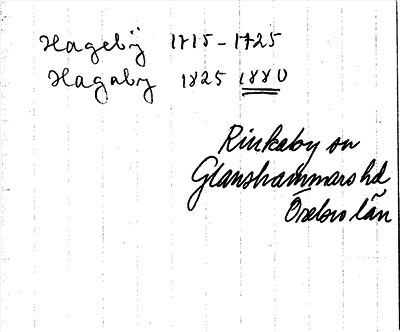 Hagebÿ 1715-1725
Hagaby 1825 1880
Rinkaby sn
Glanshammars hd
Örebro län